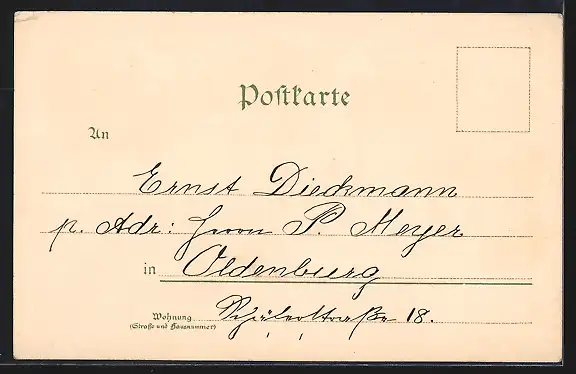 Postkarte
An
Ernst Dieckmann
p. Adr: Herrn P. Meyer
in Oldenburg
Wohnung Schäferstraße 18.
(Straße und Hausnummer)